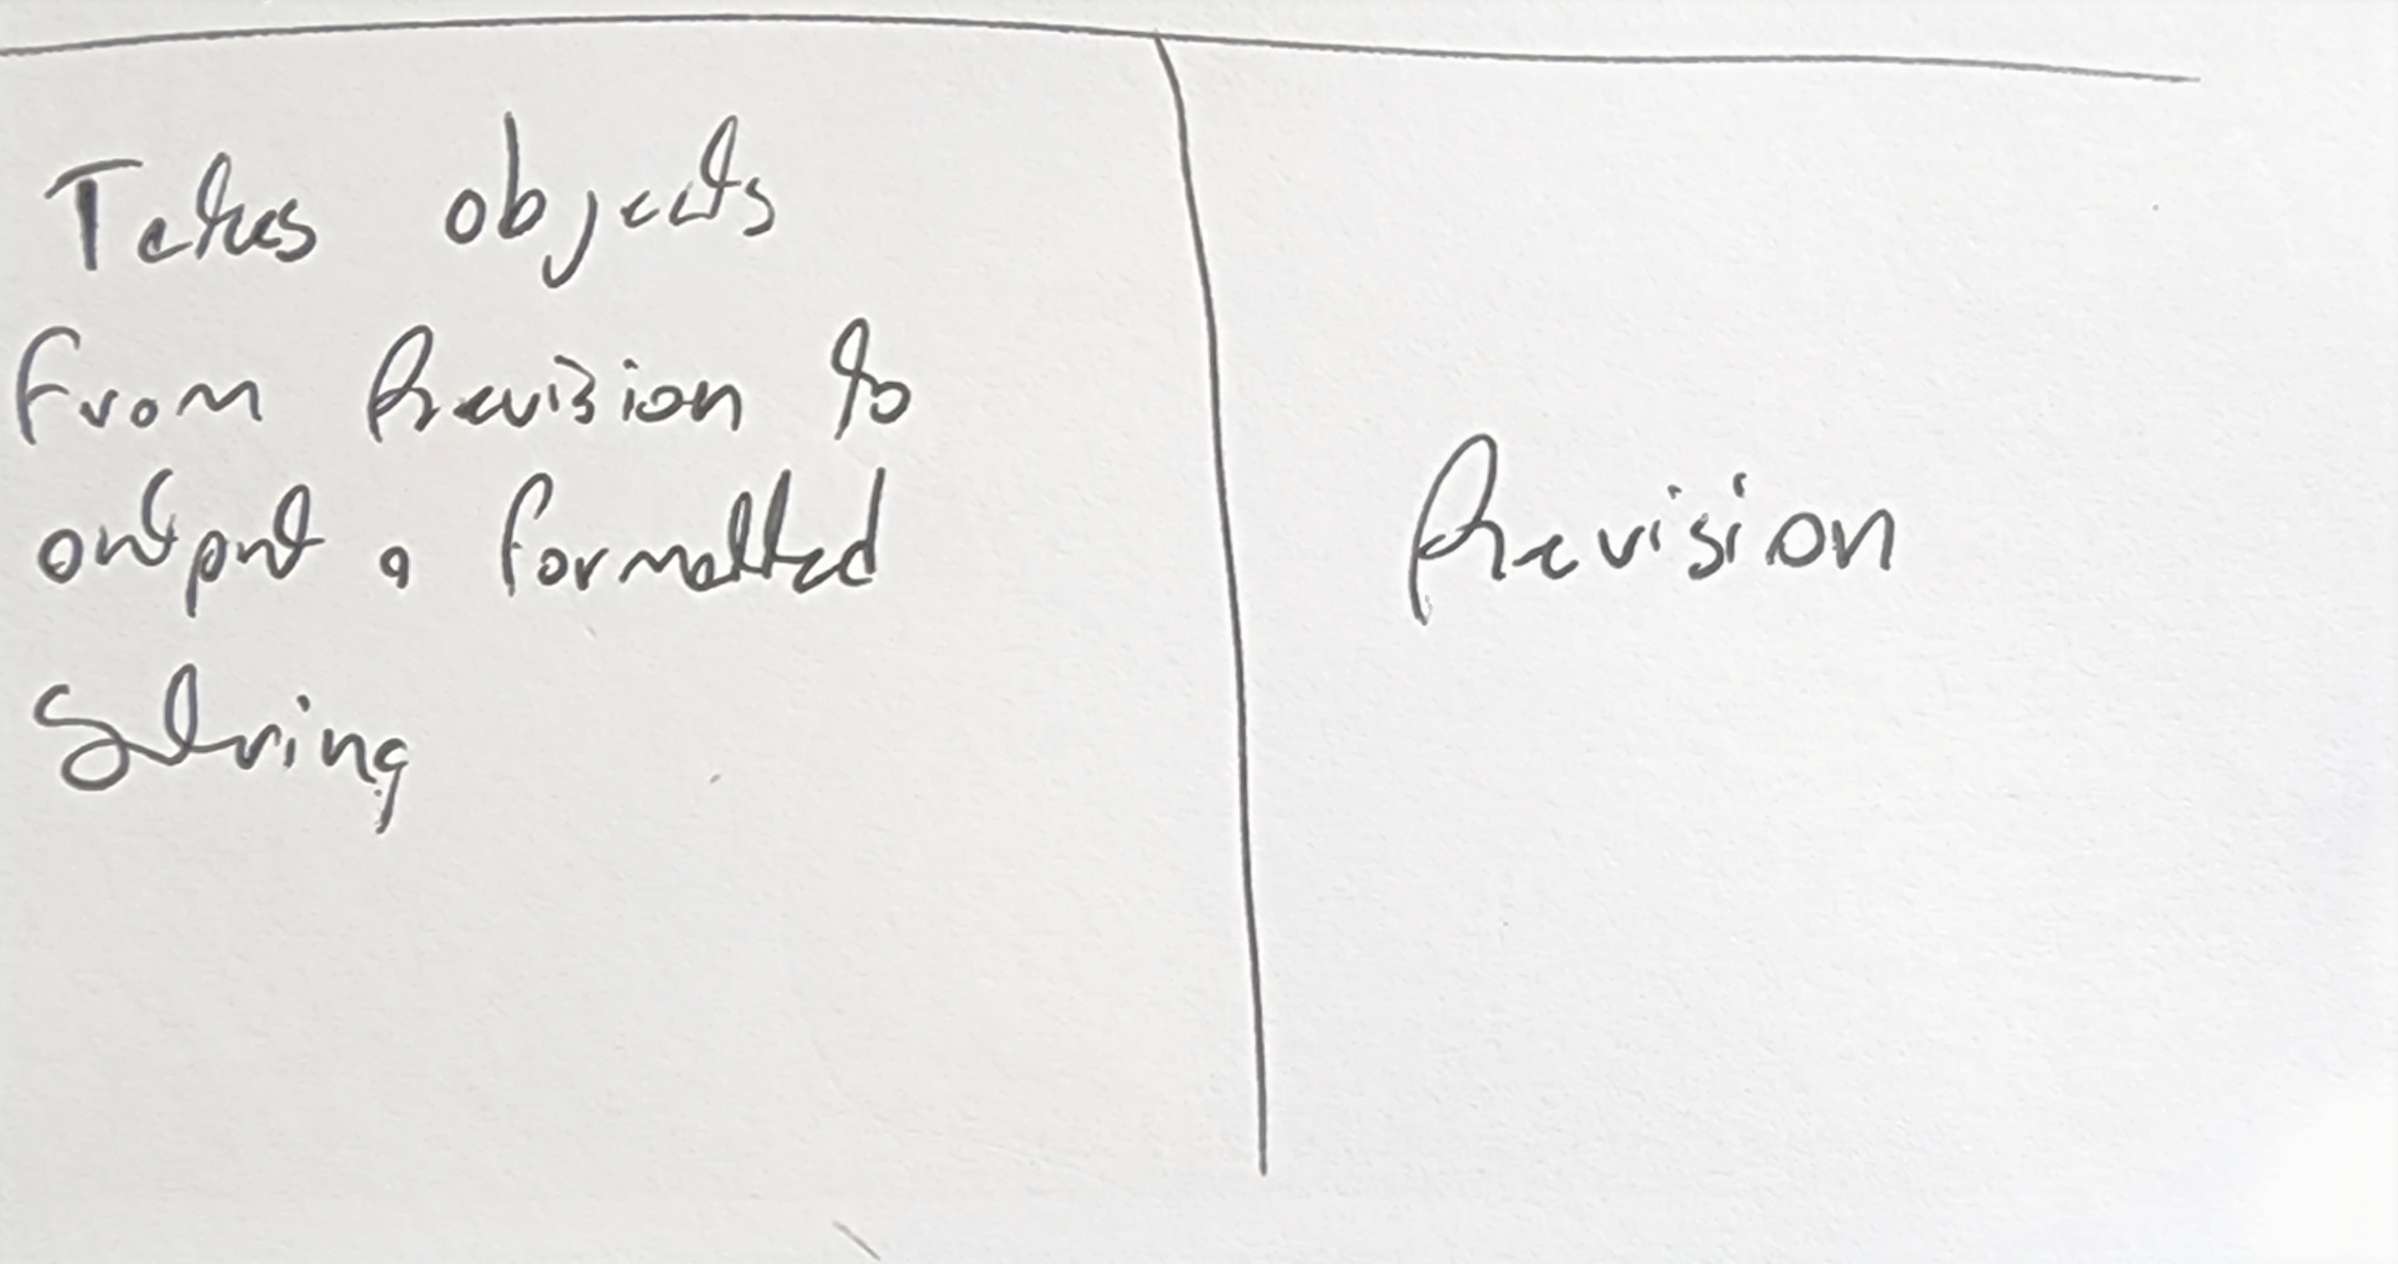 Takes objects
from Prevision to
output a formatted
string
Prevision